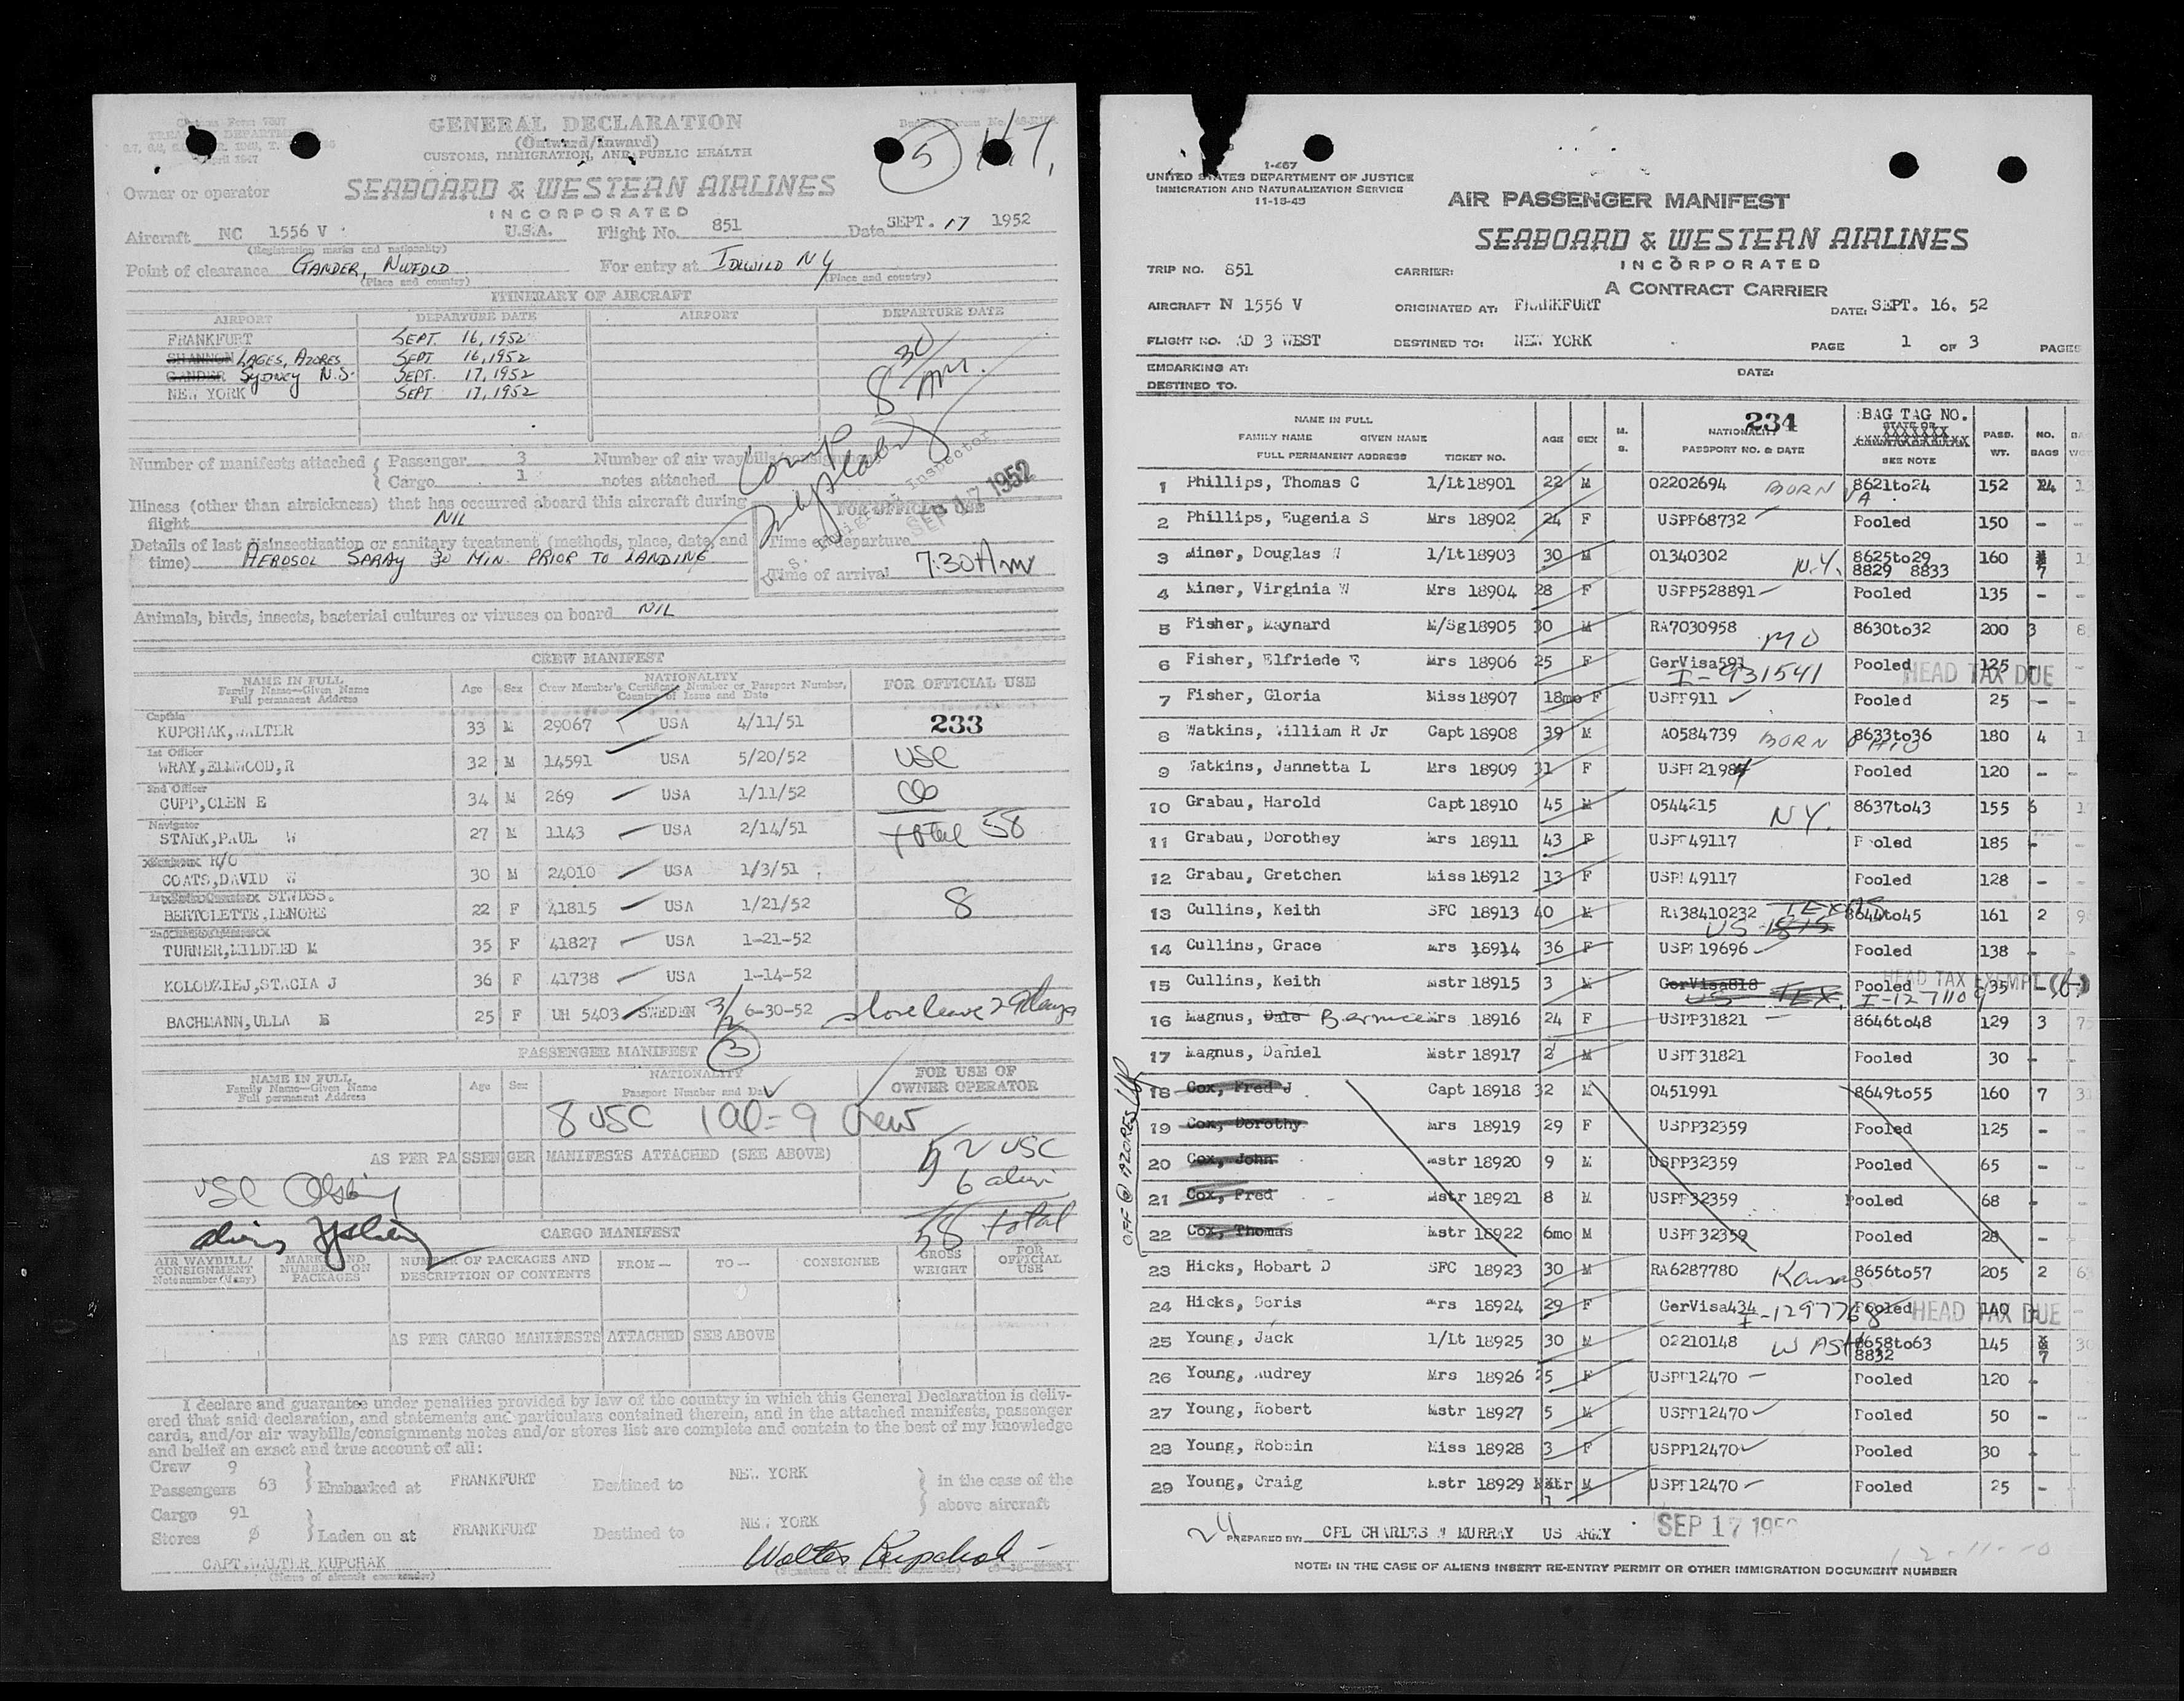 Customs Form 7507
TREASURY DEPARTMENT
April 1947
GENERAL DECLARATION
(Outward/Inward)
CUSTOMS, IMMIGRATION, AND PUBLIC HEALTH
5
Owner or operator SEABOARD & WESTERN AIRLINES
INCORPORATED
Aircraft NC 1556 V U.S.A. Flight No. 851 Date SEPT. 17 1952
(Registration marks and nationality)
Point of clearance GANDER, NWFDLD For entry at IDLWILD NY
(Place and country) (Place and country)
ITINERARY OF AIRCRAFT
AIRPORT DEPARTURE DATE AIRPORT DEPARTURE DATE
FRANKFURT SEPT. 16, 1952
SHANNON LAGES, AZORES SEPT 16, 1952
GANDER SYDNEY N.S. SEPT. 17, 1952
NEW YORK SEPT 17, 1952
8 30 AM.
Number of manifests attached Passenger 3 Number of air waybills/consignment
Cargo 1 notes attached
Illness (other than airsickness) that has occurred aboard this aircraft during
flight NIL
FOR OFFICIAL USE
SEP 17 1952
U. S. Immigrant Inspector
Details of last disinsectization or sanitary treatment (methods, place, date, and
time) AEROSOL SPRAY 30 MIN. PRIOR TO LANDING
Time of departure
Time of arrival 7:30 AM
Animals, birds, insects, bacterial cultures or viruses on board NIL
CREW MANIFEST
NAME IN FULL
Family Name—Given Name
Full permanent Address
Age Sex
NATIONALITY
Crew Member's Certificate Number or Passport Number,
Country of Issue and Date
FOR OFFICIAL USE
Captain
KUPCHAK, WALTER 33 M 29067 USA 4/11/51 233
1st Officer
WRAY, ELLWOOD, R 32 M 14591 USA 5/20/52 USC
2nd Officer
CUPP, CLEN E 34 M 269 USA 1/11/52
Navigator
STARK, PAUL W 27 M 1143 USA 2/14/51 total 58
R/O
COATS, DAVID W 30 M 24010 USA 1/3/51
STWDSS.
BERTOLETTE, LENORE 22 F 41815 USA 1/21/52 8
TURNER, MILDRED M 35 F 41827 USA 1-21-52
KOLODZIEJ, STACIA J 36 F 41738 USA 1-14-52
BACHMANN, ULLA E 25 F UH 5403 SWEDEN 3/2 6-30-52 shore leave 29 days
PASSENGER MANIFEST 3
NAME IN FULL
Family Name—Given Name
Full permanent Address
Age Sex
NATIONALITY
Passport Number and Date
FOR USE OF
OWNER OPERATOR
8 USC 1 al = 9 crew
AS PER PASSENGER MANIFESTS ATTACHED (SEE ABOVE)
52 USC
6 alien
58 total
USC
aliens
CARGO MANIFEST
AIR WAYBILL/
CONSIGNMENT
Note number (if any)
MARKS AND
NUMBERS ON
PACKAGES
NUMBER OF PACKAGES AND
DESCRIPTION OF CONTENTS
FROM— TO— CONSIGNEE
GROSS
WEIGHT
FOR
OFFICIAL
USE
AS PER CARGO MANIFESTS ATTACHED SEE ABOVE
I declare and guarantee under penalties provided by law of the country in which this General Declaration is deliv-
ered that said declaration, and statements and particulars contained therein, and in the attached manifests, passenger
cards, and/or air waybills/consignments notes and/or stores list are complete and contain to the best of my knowledge
and belief an exact and true account of all:
Crew 9
Passengers 63 Embarked at FRANKFURT Destined to NEW YORK in the case of the
above aircraft
Cargo 91
Stores Ø Laden on at FRANKFURT Destined to NEW YORK
CAPT. WALTER KUPCHAK
(Name of aircraft commander)
Walter Kupchak
I-467
UNITED STATES DEPARTMENT OF JUSTICE
IMMIGRATION AND NATURALIZATION SERVICE
11-15-45
AIR PASSENGER MANIFEST
SEABOARD & WESTERN AIRLINES
INCORPORATED
A CONTRACT CARRIER
TRIP NO. 851 CARRIER:
AIRCRAFT N 1556 V ORIGINATED AT: FRANKFURT DATE: SEPT. 16. 52
FLIGHT NO. AD 3 WEST DESTINED TO: NEW YORK PAGE 1 OF 3 PAGES
EMBARKING AT: DATE:
DESTINED TO.
NAME IN FULL
FAMILY NAME GIVEN NAME
FULL PERMANENT ADDRESS TICKET NO.
AGE SEX M. S.
234
NATIONALITY
PASSPORT NO. & DATE
BAG TAG NO.
SEE NOTE
PASS. WT.
NO. BAGS
1 Phillips, Thomas C 1/Lt 18901 22 M 02202694 BORN VA 8621to24 152 4
2 Phillips, Eugenia S Mrs 18902 24 F USPP68732 Pooled 150 -
3 Miner, Douglas W 1/Lt 18903 30 M 01340302 N.Y. 8625to29 8829 8833 160 7
4 Miner, Virginia W Mrs 18904 28 F USPP528891 Pooled 135 -
5 Fisher, Maynard M/Sg 18905 30 M RA7030958 MO 8630to32 200 3
6 Fisher, Elfriede E Mrs 18906 25 F GerVisa591 I-931541 Pooled 125 HEAD TAX DUE
7 Fisher, Gloria Miss 18907 18mo F USPP911 Pooled 25 -
8 Watkins, William R Jr Capt 18908 39 M A0584739 BORN OHIO 8633to36 180 4
9 Watkins, Jannetta L Mrs 18909 31 F USPP21984 Pooled 120 -
10 Grabau, Harold Capt 18910 45 M 0544215 NY. 8637to43 155 6
11 Grabau, Dorothey Mrs 18911 43 F USPP49117 Pooled 185 -
12 Grabau, Gretchen Miss 18912 13 F USPP49117 Pooled 128 -
13 Cullins, Keith SFC 18913 40 M RA38410232 TEXAS 8644to45 161 2
14 Cullins, Grace Mrs 18914 36 F USPP19696 Pooled 138 -
15 Cullins, Keith Mstr 18915 3 M GerVisa818 US TEX. I-127110 Pooled 35 HEAD TAX EXEMPT
16 Magnus, Dale Bernice Mrs 18916 24 F USPP31821 8646to48 129 3
17 Magnus, Daniel Mstr 18917 2 M USPP31821 Pooled 30 -
OFF @ AZORES
18 Cox, Fred J Capt 18918 32 M 0451991 8649to55 160 7
19 Cox, Dorothy Mrs 18919 29 F USPP32359 Pooled 125 -
20 Cox, John Mstr 18920 9 M USPP32359 Pooled 65 -
21 Cox, Fred Mstr 18921 8 M USPP32359 Pooled 68 -
22 Cox, Thomas Mstr 18922 6mo M USPP32359 Pooled 28 -
23 Hicks, Hobart D SFC 18923 30 M RA6287780 Kansas 8656to57 205 2
24 Hicks, Doris Mrs 18924 29 F GerVisa434 I-1297768 Pooled 140 HEAD TAX DUE
25 Young, Jack 1/Lt 18925 30 M 02210148 WASH 8658to63 8832 145 7
26 Young, Audrey Mrs 18926 25 F USPP12470 Pooled 120 -
27 Young, Robert Mstr 18927 5 M USPP12470 Pooled 50 -
28 Young, Robbin Miss 18928 3 F USPP12470 Pooled 30 -
29 Young, Craig Mstr 18929 1 M USPP12470 Pooled 25 -
24 PREPARED BY: CPL CHARLES W MURRAY US ARMY SEP 17 1952
NOTE: IN THE CASE OF ALIENS INSERT RE-ENTRY PERMIT OR OTHER IMMIGRATION DOCUMENT NUMBER